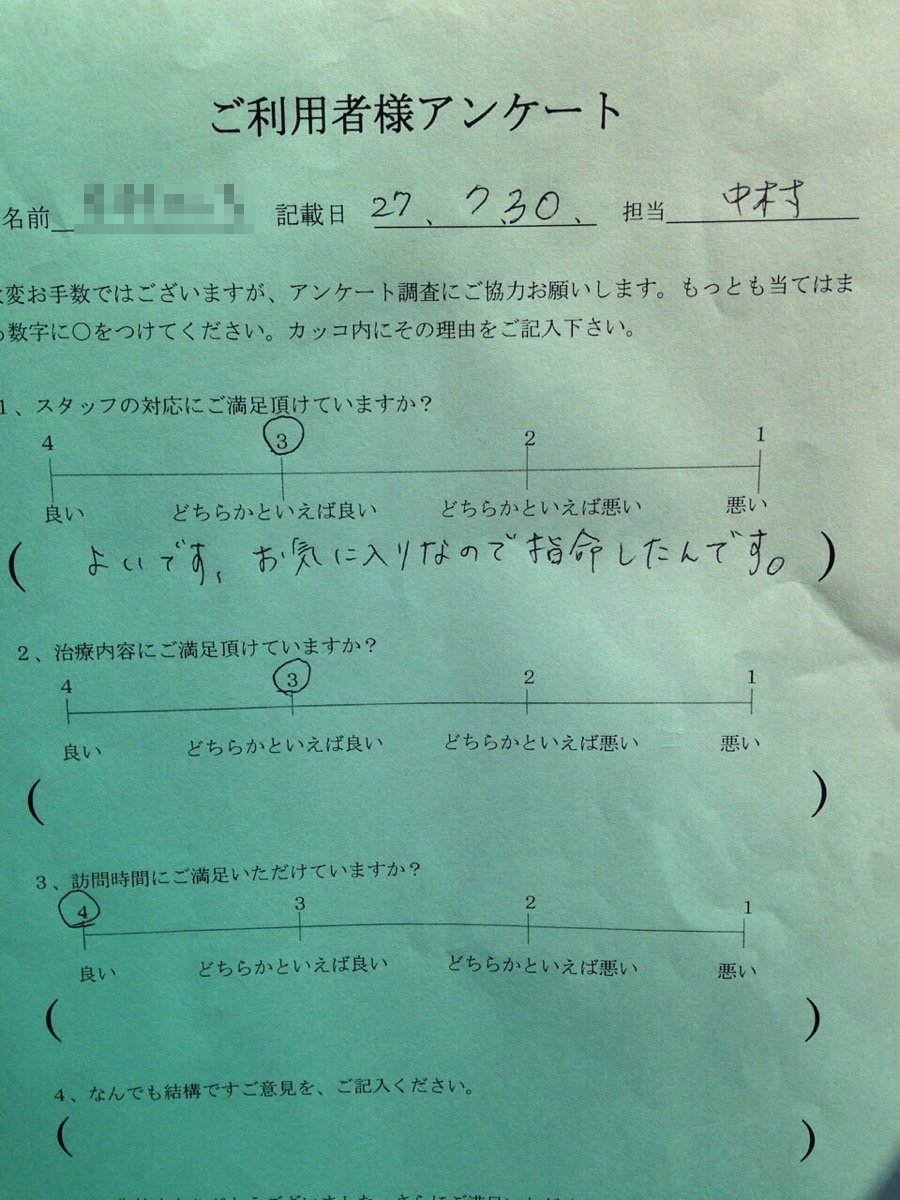 ご利用者様アンケート
名前 記載日 27、7、30、 担当 中村
変お手数ではございますが、アンケート調査にご協力お願いします。もっとも当てはま
数字に〇をつけてください。カッコ内にその理由をご記入下さい。
1、スタッフの対応にご満足頂けていますか?
4 3 2 1
良い どちらかといえば良い どちらかといえば悪い 悪い
( よいです、お気に入りなので指命したんです。 )
2、治療内容にご満足頂けていますか?
4 3 2 1
良い どちらかといえば良い どちらかといえば悪い 悪い
( )
3、訪問時間にご満足いただけていますか?
4 3 2 1
良い どちらかといえば良い どちらかといえば悪い 悪い
( )
4、なんでも結構ですご意見を、ご記入ください。
( )